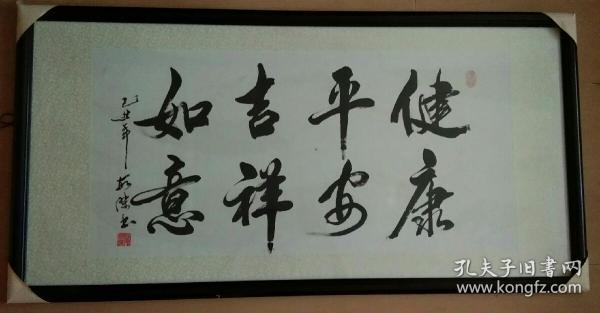 健康
平安
吉祥
如意
孔夫子旧書网
www.kongfz.com